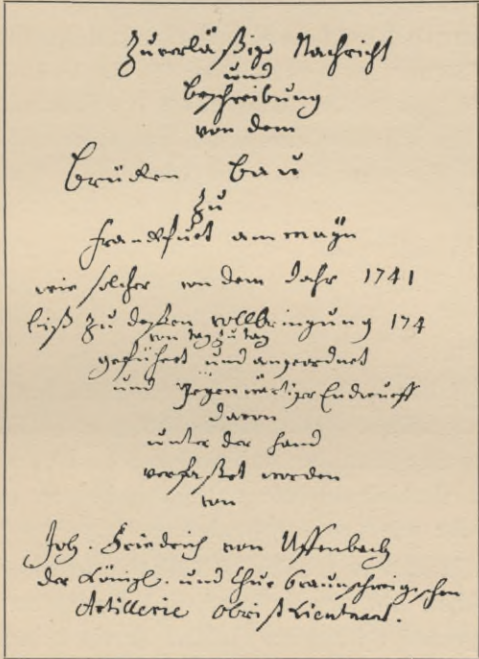 Zuverläßige Nachricht
und
beschreibung
von dem
brücken bau
zu
franckfurt am mayn
wie solcher von dem Jahr 1741
biß zu deßen vollbringung 174
von tag zu tag
geführet und angeordnet
und gegenwärtiger Endwurff
davon
unter der hand
verfaßet worden
von
Joh. Friedrich von Uffenbach
der Königl. und Chur braunschweigischen
Artillerie obrist Lieutnant.